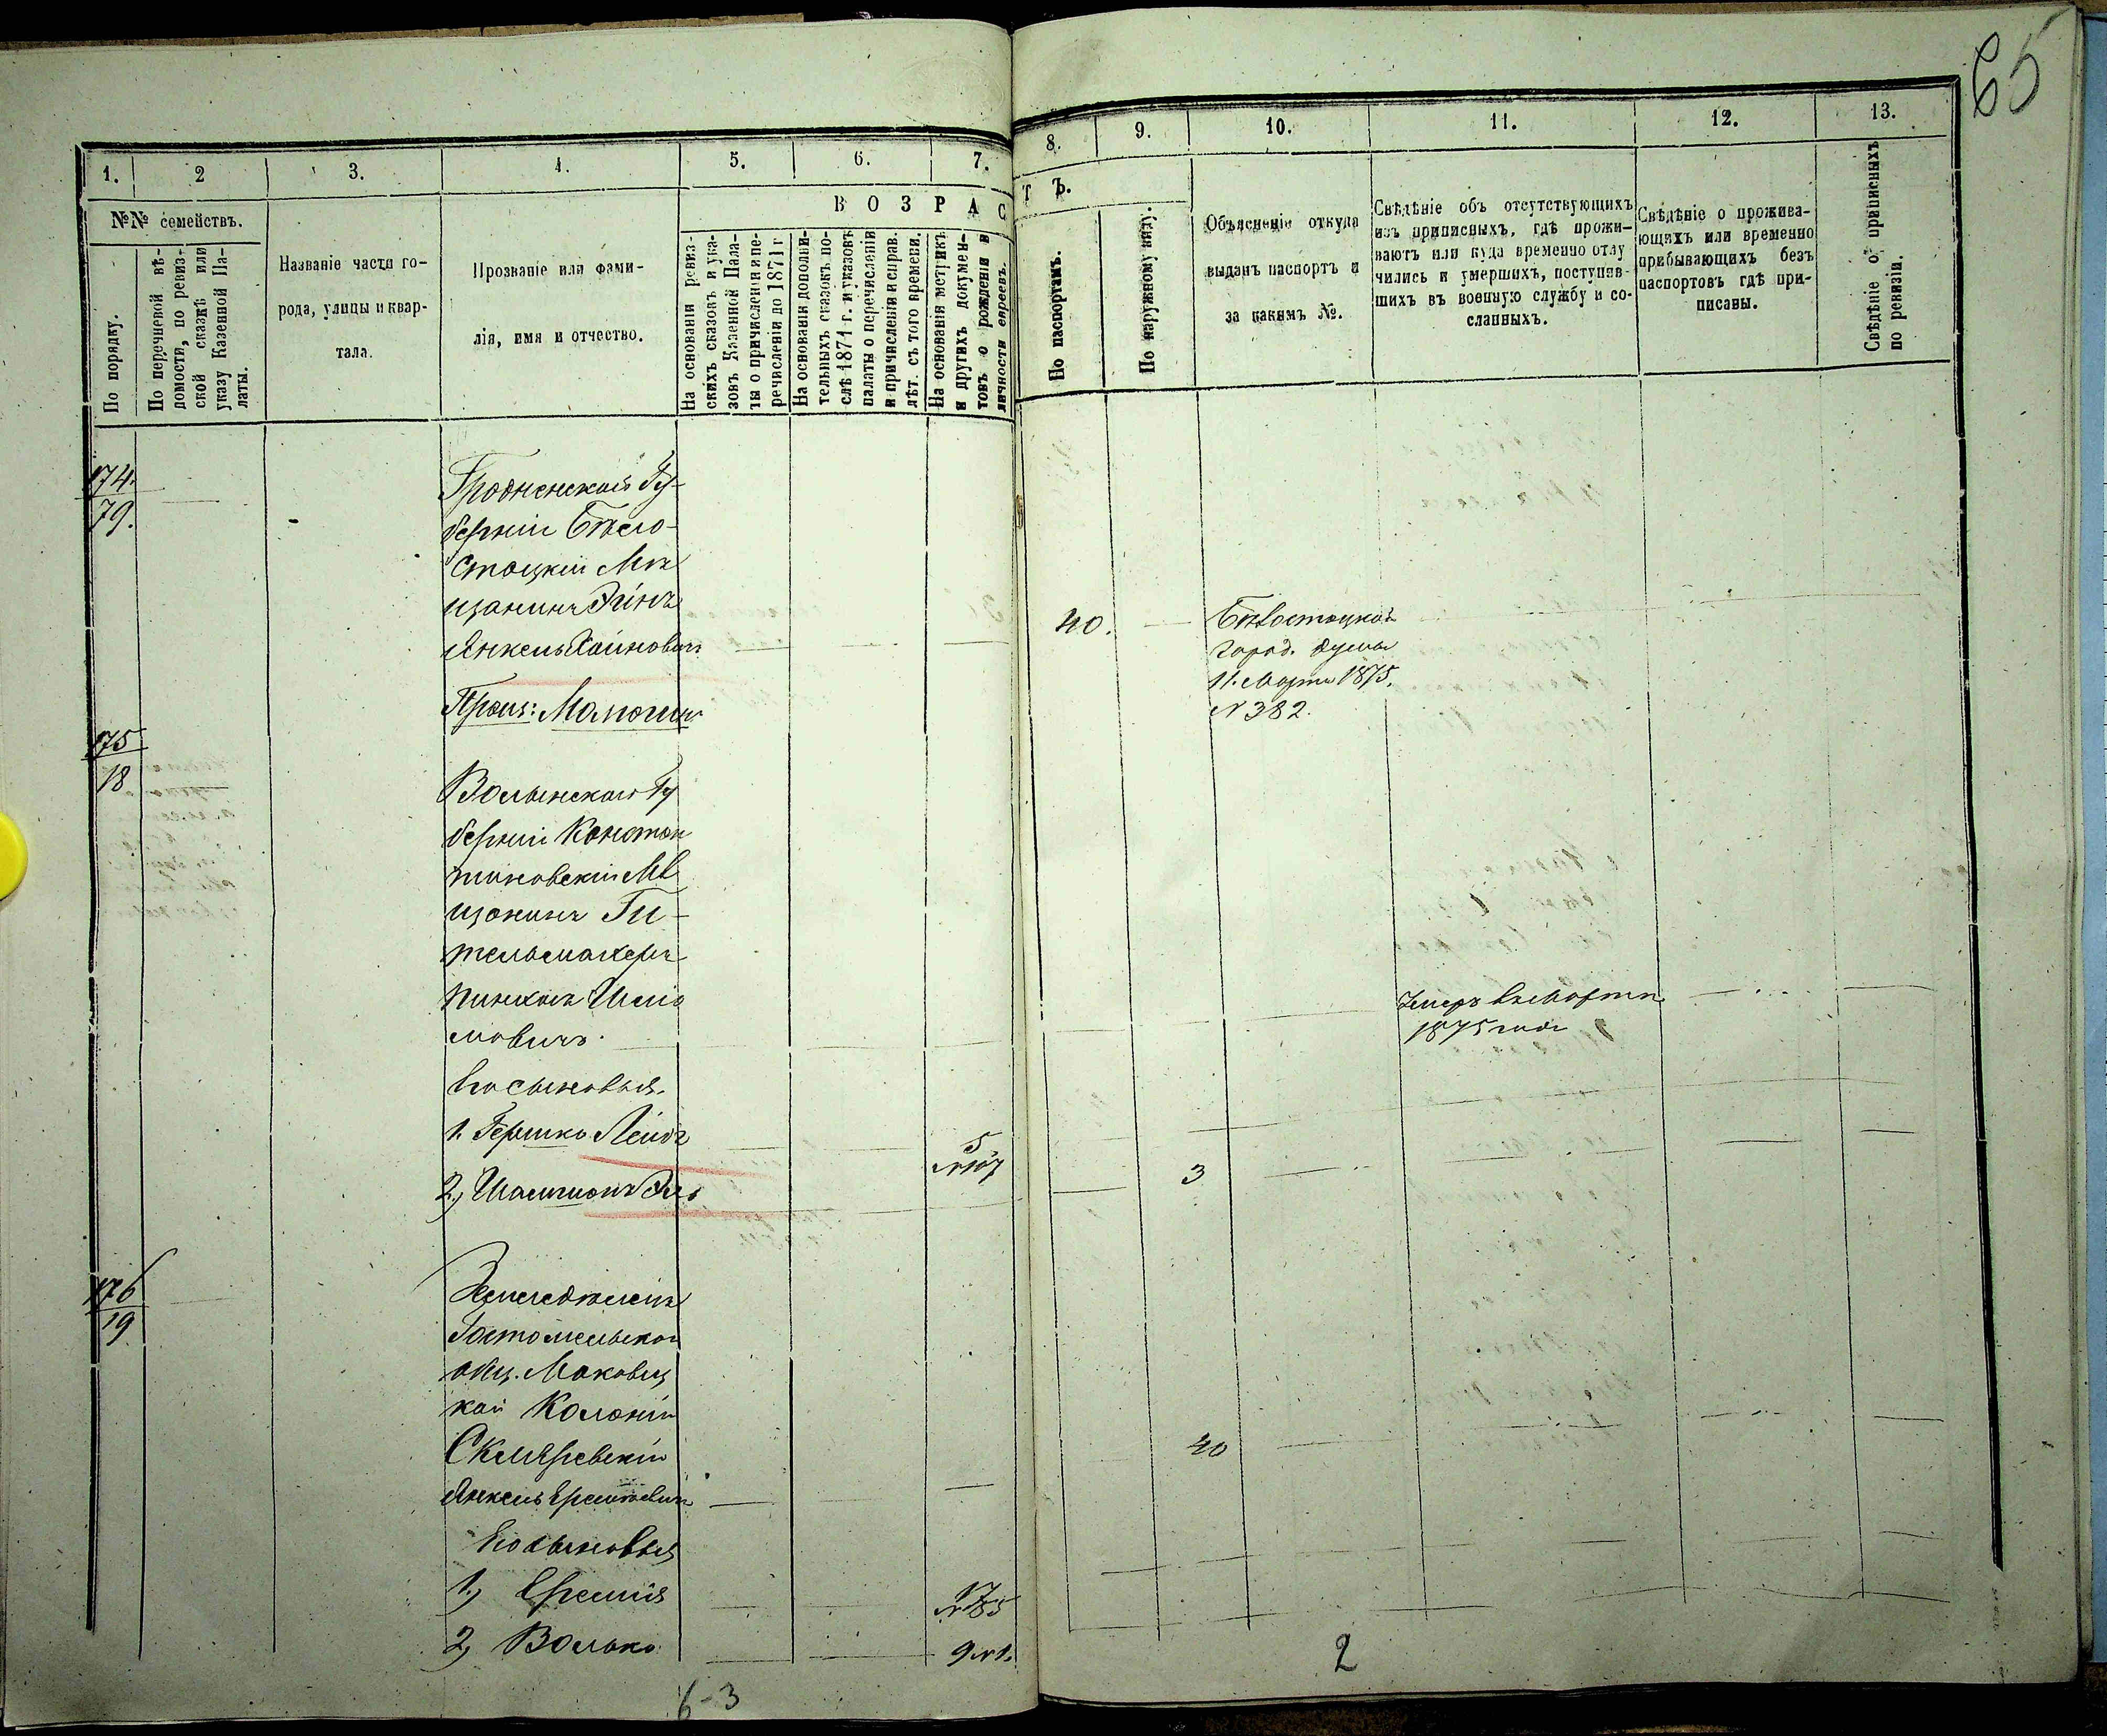 65
1. 2 3. 4. 5. 6. 7. 8. 9. 10. 11. 12. 13.
№№ семействъ.
По порядку.
По перечневой вѣ-
домости, по ревиз-
ской сказкѣ или
указу Казенной Па-
латы.
Названіе части го-
рода, улицы и квар-
тала.
Прозваніе или фами-
лія, имя и отчество.
В О З Р А С Т Ъ.
На основаніи ревиз-
скихъ сказокъ и ука-
зовъ Казенной Пала-
ты о причисленіи и пе-
речисленіи до 1871 г
На основаніи дополни-
тельныхъ сказокъ по-
слѣ 1871 г. и указовъ
палаты о перечисленіи
и причисленіи и справ.
лѣт. съ того времени.
На основаніи метрикъ
и другихъ докумен-
товъ о рожденіи и
личности евреевъ.
По паспортамъ.
По наружному виду.
Объясненіе откуда
выданъ паспортъ и
за какимъ №.
Свѣдѣніе объ отсутствующихъ
изъ приписныхъ, гдѣ прожи-
ваютъ или куда временно отлу
чились и умершихъ, поступив-
шихъ въ военную службу и со-
сланныхъ.
Свѣдѣніе о прожива-
ющихъ или временно
прибывающихъ безъ
паспортовъ гдѣ при-
писаны.
Свѣдѣніе о приписныхъ
по ревизіи.
174.
79.
Гродненской Гу-
берніи Бѣло-
стоцкій Мѣ
щанинъ
Янкель Хаимовичъ
40.
Бѣлостоцкой
город. думы
11. Марта 1875.
№ 382.
175
18
Волынской Гу
берніи Констан
тиновскій Мѣ
щанинъ Ги-
тельмахеръ
Пинхасъ Шліо
мовичъ.
Его сыновья.
1. Гершко Лейбъ
5
№ 107
2,
3
Умеръ въ Мартѣ
1875 года
176
19
Земледѣлецъ
Гостомельской
общ. Маковец
кой Колоніи
Скляревскій
Янкель
40
Его сыновья
1,
17
№ 85
2, Волько
9 № 1.
6-3
2